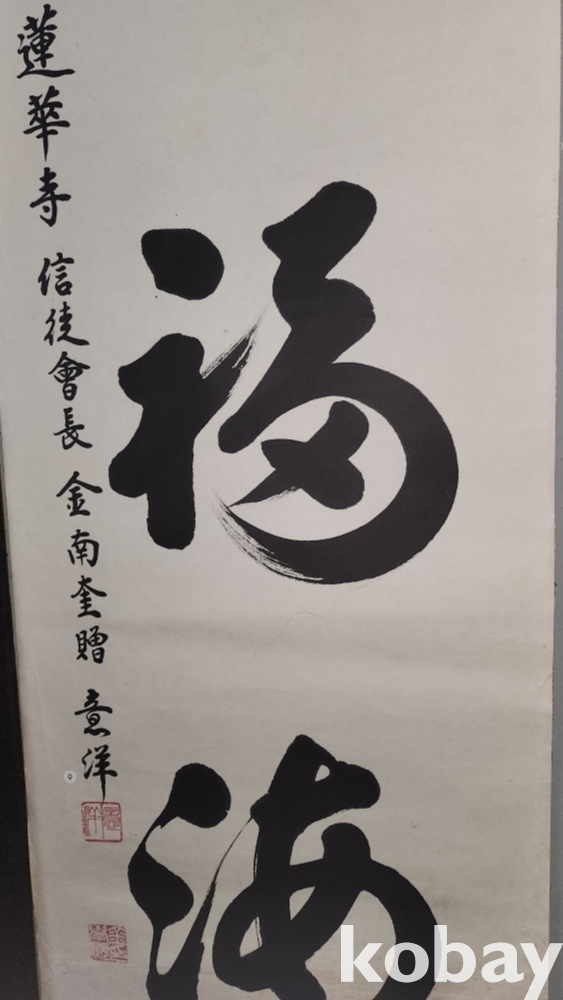 福海
蓮華寺 信徒會長 金南奎贈 意洋
9
kobay